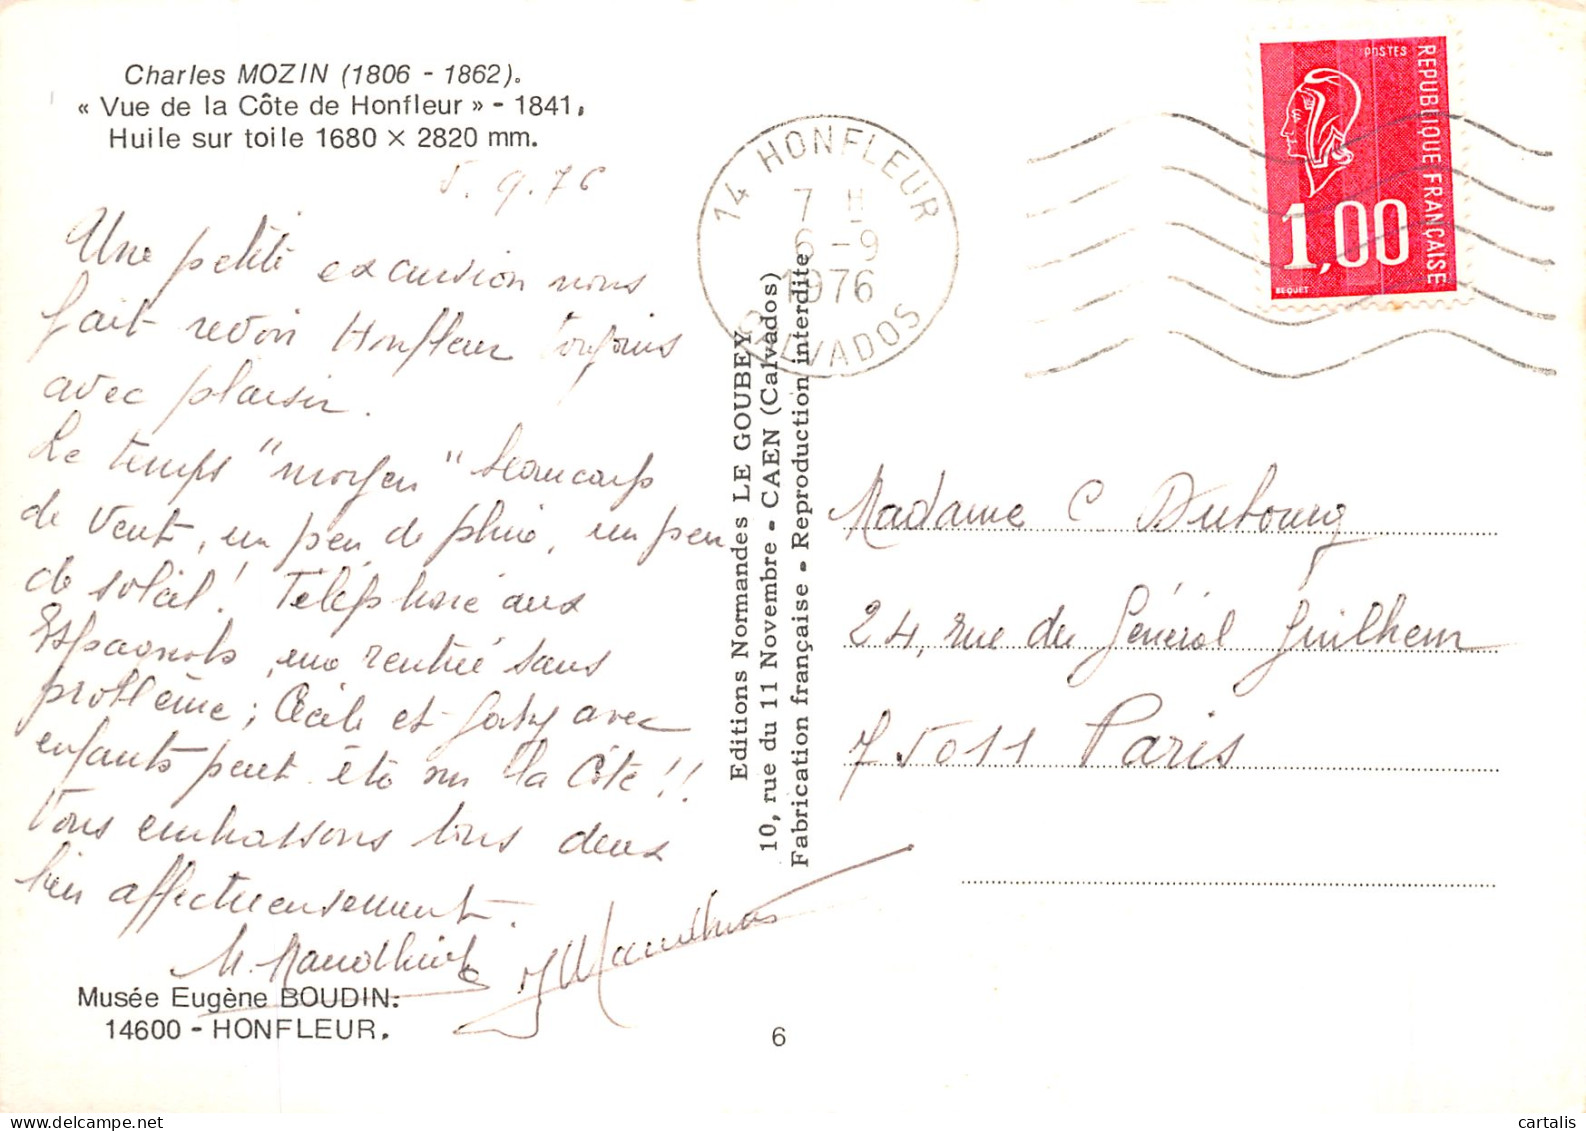 Charles MOZIN (1806 - 1862).
« Vue de la Côte de Honfleur » - 1841.
Huile sur toile 1680 × 2820 mm.
5.9.76
Une petite excursion nous
fait revoir Honfleur toujours
avec plaisir.
Le temps "moyen" beaucoup
de vent, un peu de pluie, un peu
de soleil! Téléphoné aux
Espagnols, rentrée sans
problème; Cécile et avec
enfants peut être sur la Côte!!
Vous embrassons tous deux
bien affectueusement.
Musée Eugène BOUDIN.
14600 - HONFLEUR.
Editions Normandes LE GOUBEY
10, rue du 11 Novembre - CAEN (Calvados)
Fabrication française - Reproduction interdite
6
14 HONFLEUR
7 H
6 - 9
1976
CALVADOS
POSTES
REPUBLIQUE FRANÇAISE
1,00
BEQUET
Madame C Dubourg
24, rue du Général Guilhem
75011 Paris
cartalis
delcampe.net